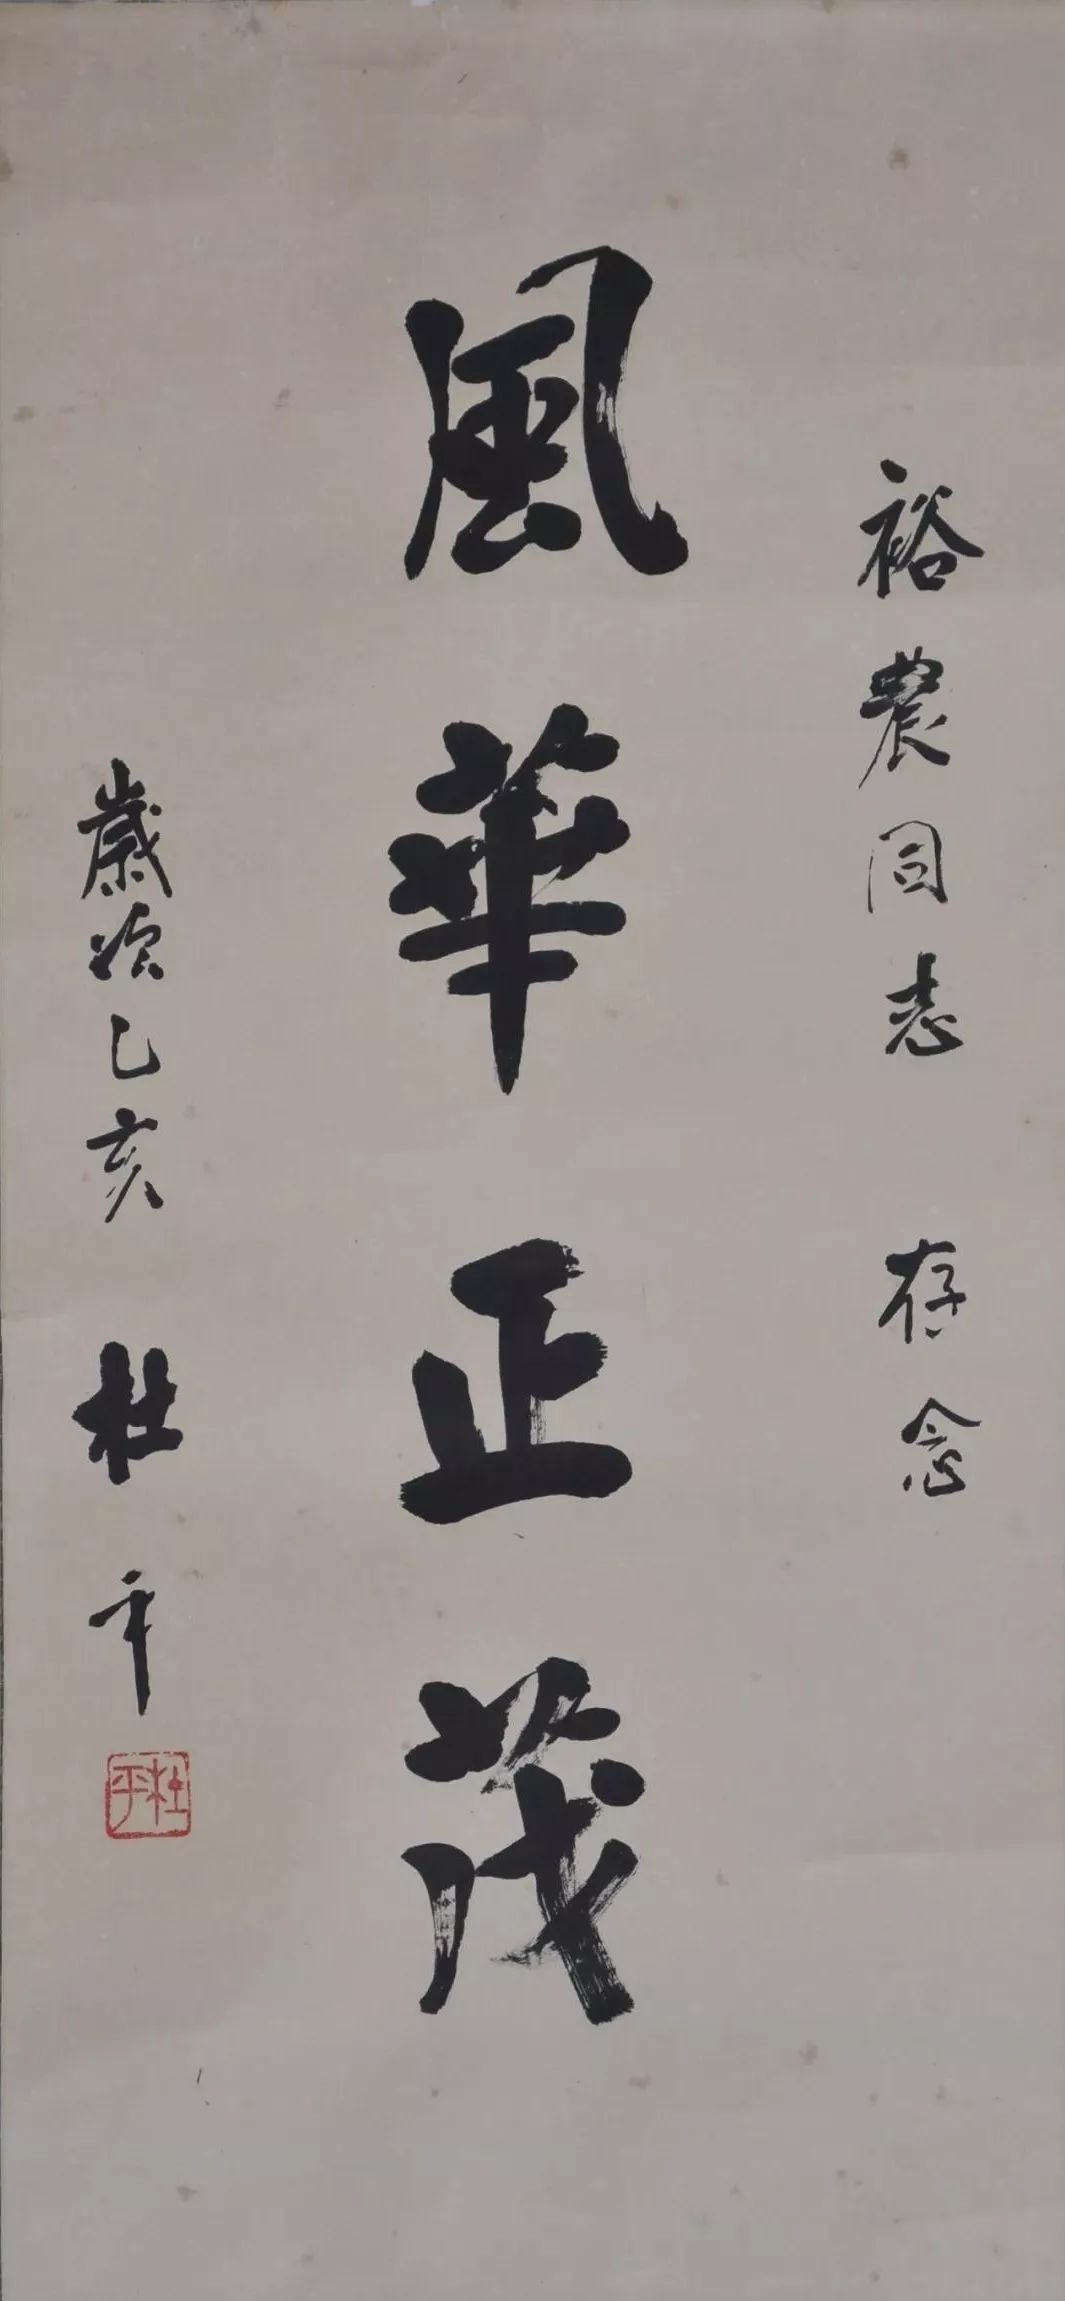 裕農同志 存念
風華正茂
歲次乙亥 杜平
杜平